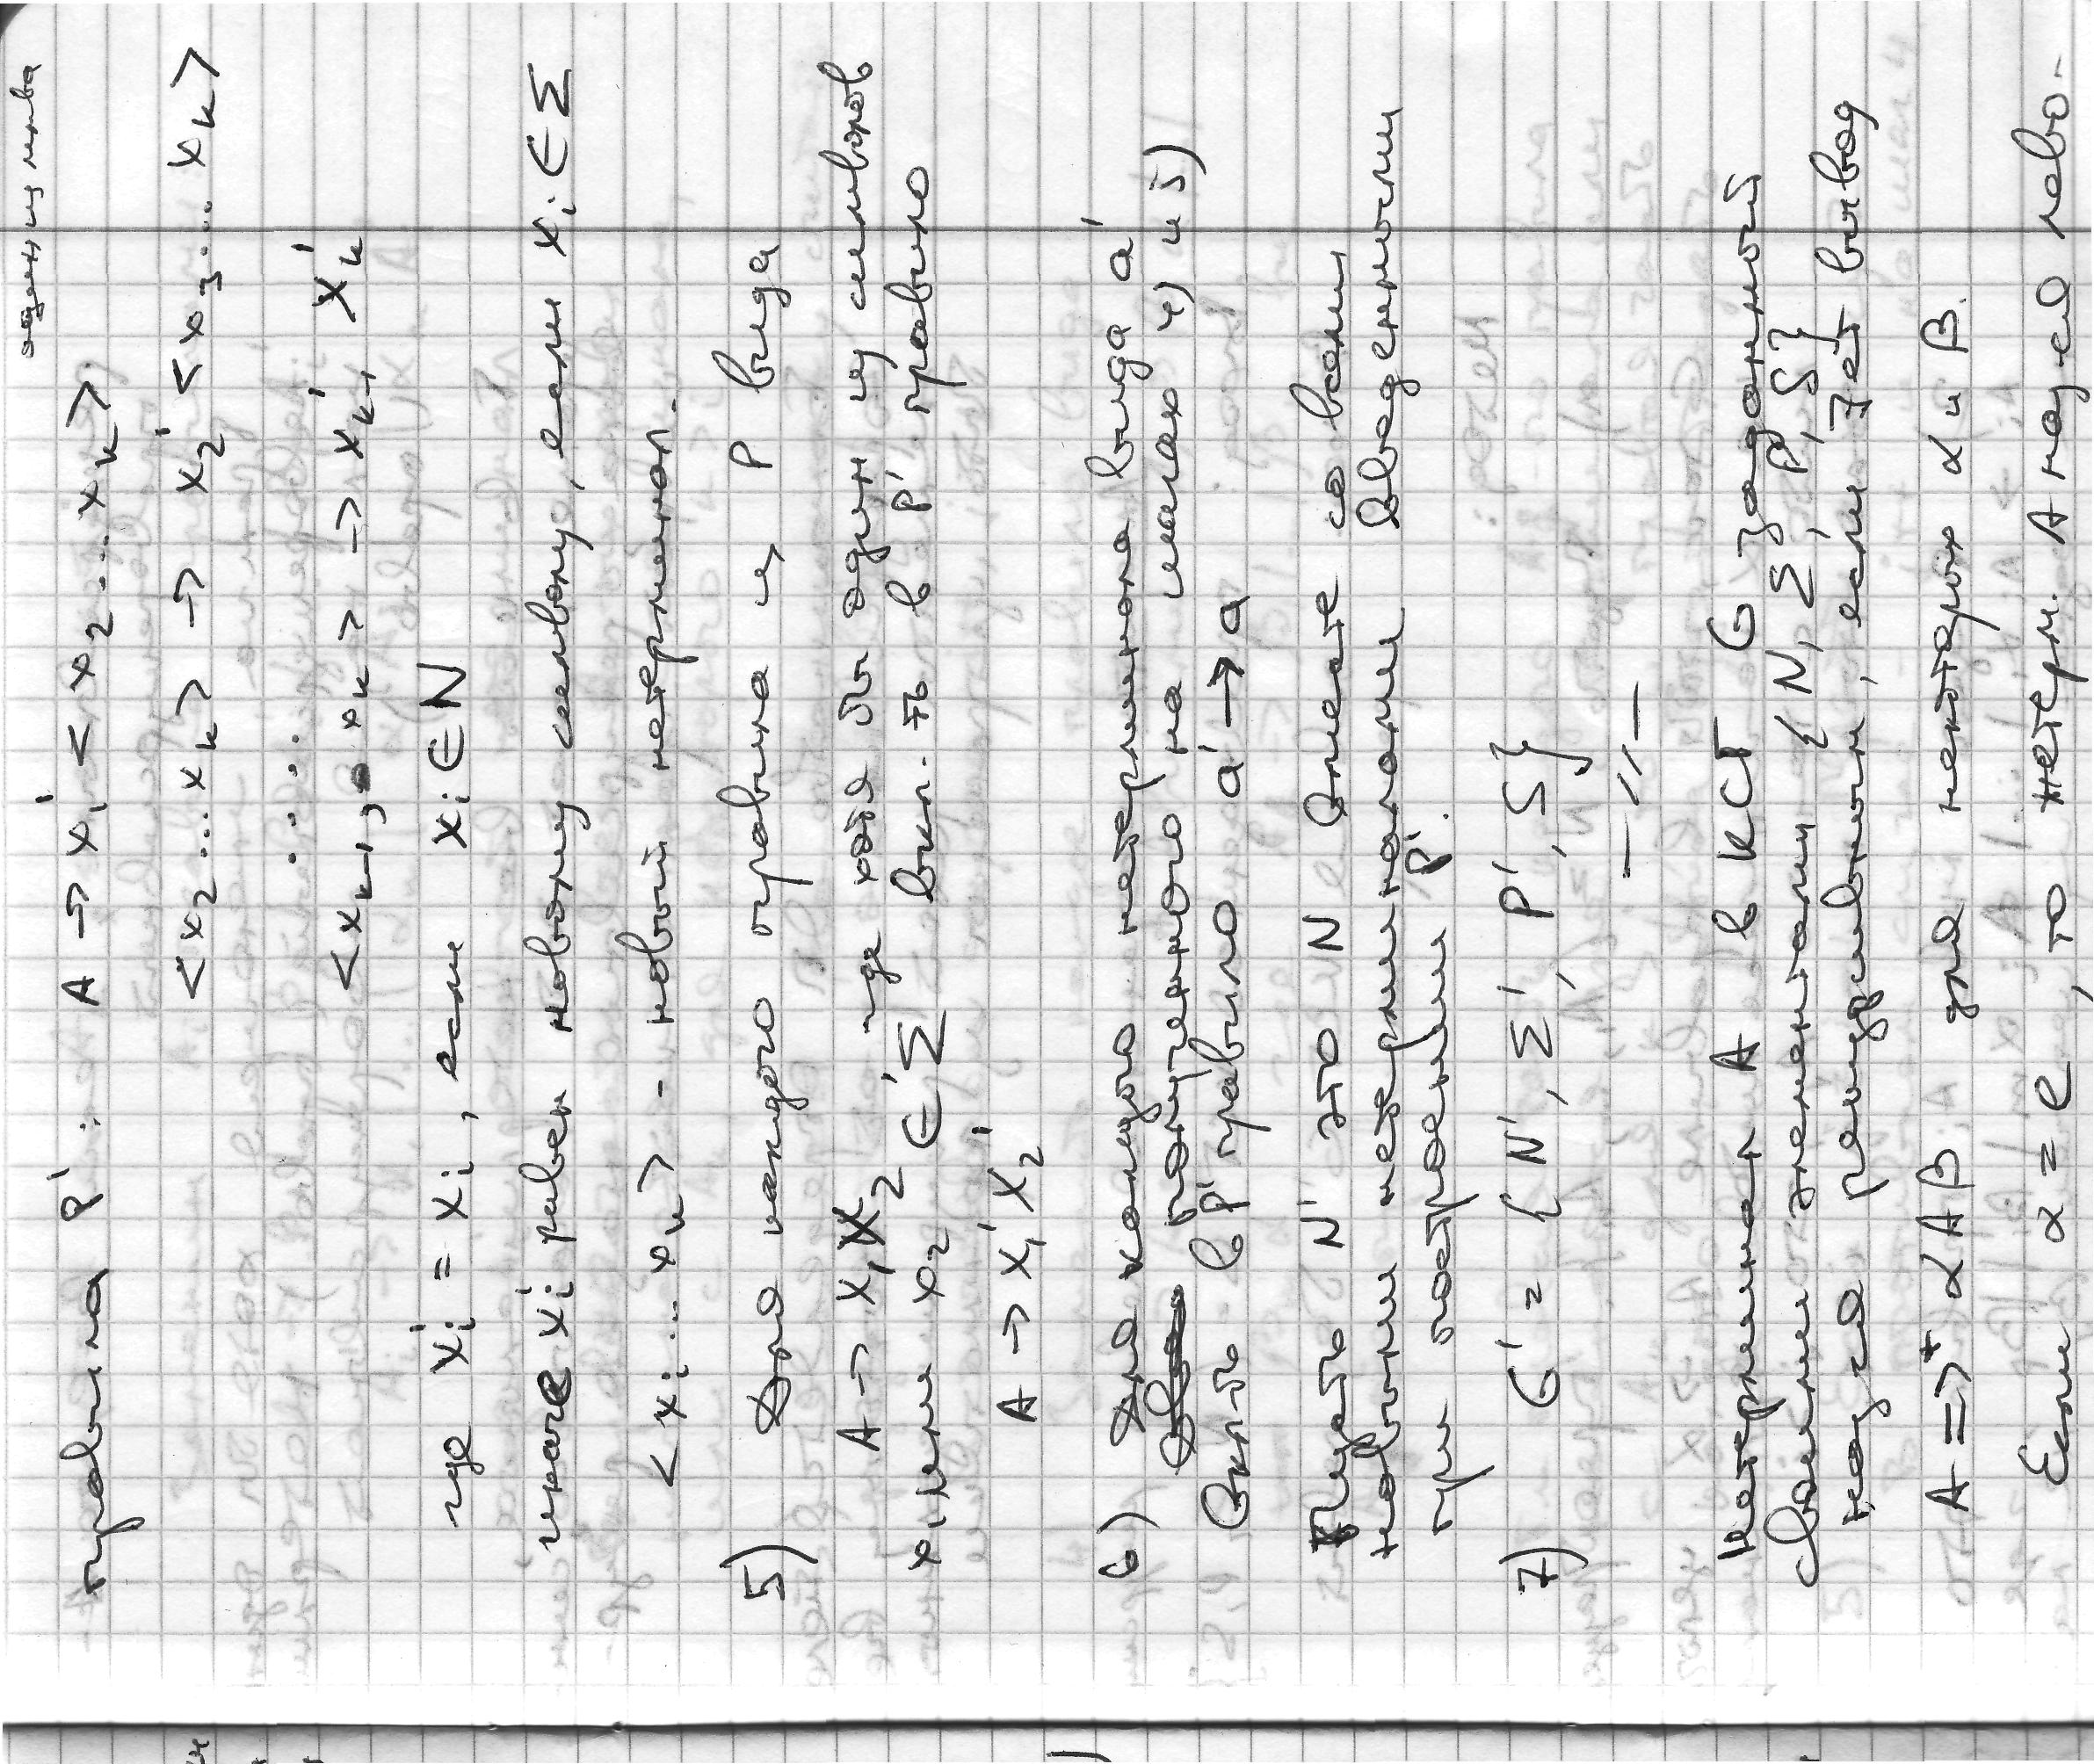 правила P': A → x₁' <x₂...xₖ>
<x₂...xₖ> → x₂' <x₃...xₖ>
. . . .
<xₖ₋₁, xₖ> → xₖ₋₁' xₖ'
где xᵢ' = xᵢ, если xᵢ ∈ N
иначе xᵢ' равен новому символу, если xᵢ ∈ Σ
<xᵢ...xₖ> - новый нетерминал.
5) Для каждого правила из P вида
A → x₁x₂ где хотя бы один из символов
x₁ или x₂ ∈ Σ вкл-ть в P' правило
A → x₁'x₂'
6) Для каждого нетерминала вида a'
полученного на шагах 4) и 5)
Вкл-ть в P' правило a' → a
Пусть N' это N вместе со всеми
новыми нетерминалами введенными
при построении P'.
7) G' = {N', Σ', P', S}
— // —
Нетерминал A в КСГ G заданной
своими элементами {N, Σ, P, S}
наз-ся рекурсивным, если Ǝет вывод
A =>⁺ αAβ для некоторых α и β.
Если α = e, то нетерм. A наз-ся лево-